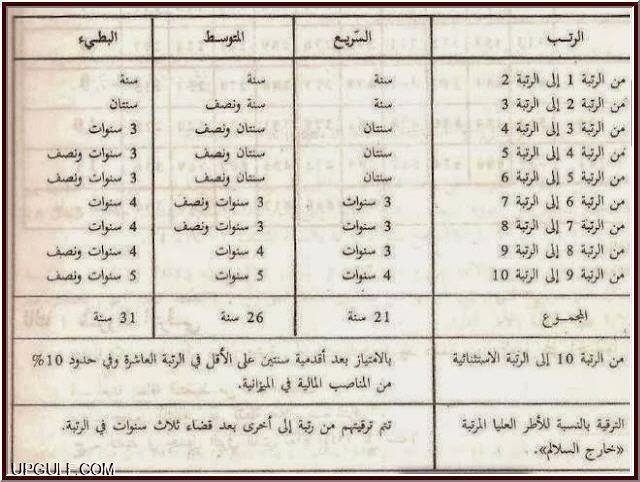 الرتب السّريع المتوسط البطيء
من الرتبة 1 إلى الرتبة 2 سنة سنة سنة
من الرتبة 2 إلى الرتبة 3 سنة سنة ونصف سنتان
من الرتبة 3 إلى الرتبة 4 سنتان سنتان ونصف 3 سنوات
من الرتبة 4 إلى الرتبة 5 سنتان سنتان ونصف 3 سنوات ونصف
من الرتبة 5 إلى الرتبة 6 سنتان سنتان ونصف 3 سنوات ونصف
من الرتبة 6 إلى الرتبة 7 3 سنوات 3 سنوات ونصف 4 سنوات
من الرتبة 7 إلى الرتبة 8 3 سنوات 3 سنوات ونصف 4 سنوات
من الرتبة 8 إلى الرتبة 9 3 سنوات 4 سنوات 4 سنوات ونصف
من الرتبة 9 إلى الرتبة 10 4 سنوات 5 سنوات 5 سنوات ونصف
المجموع 21 سنة 26 سنة 31 سنة
من الرتبة 10 إلى الرتبة الاستثنائية بالامتياز بعد أقدمية سنتين على الأقل في الرتبة العاشرة وفي حدود 10%
من المناصب المالية في الميزانية.
الترقية بالنسبة للأطر العليا المرتبة تتم ترقيتهم من رتبة إلى أخرى بعد قضاء ثلاث سنوات في الرتبة.
«خارج السلالم».
UPGULF.COM